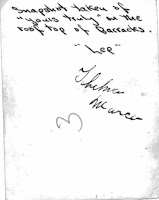 Snapshot taken of
"yours truly" on the
roof top of Barracks.
"Lee"
Thelma
3